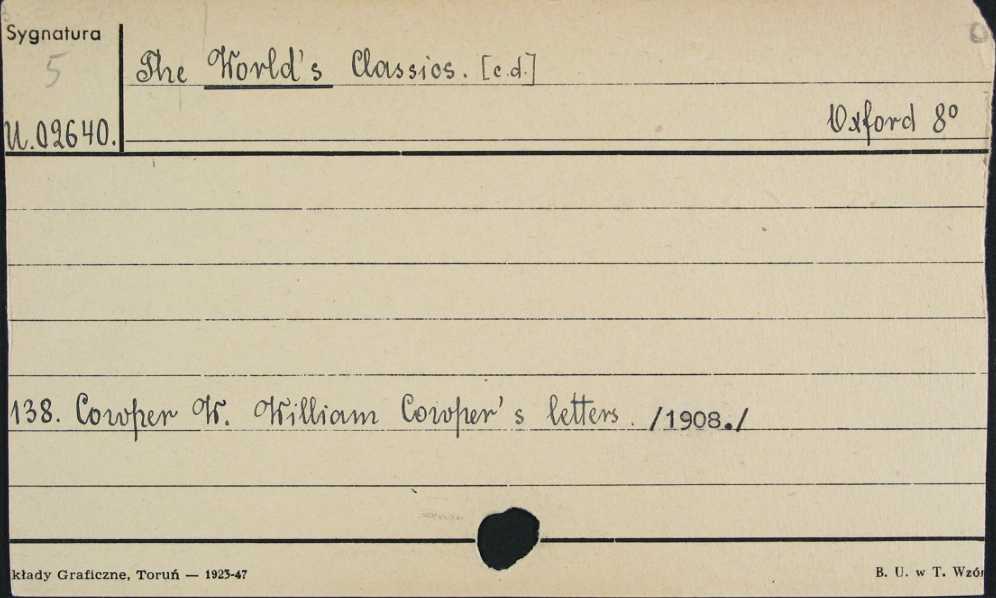 Sygnatura
5
The World's Classics. [c.d.]
U.02640.
Oxford 8º
138. Cowper W. William Cowper's letters. /1908./
kłady Graficzne, Toruń — 1923-47
B. U. w T. Wzór